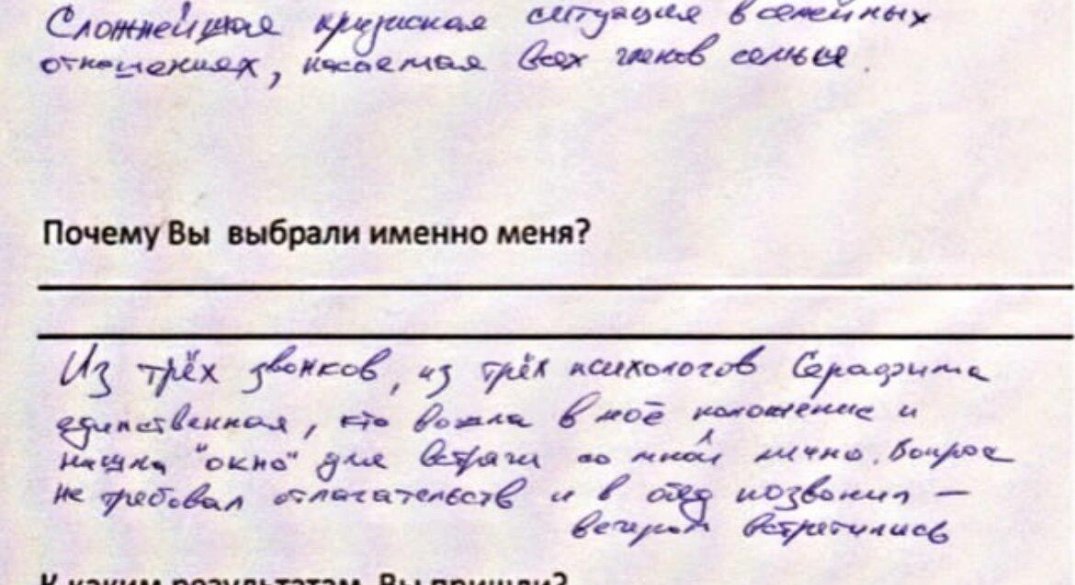 Сложнейшая кризисная ситуация в семейных
отношениях, касаемая всех членов семьи.
Почему Вы выбрали именно меня?
Из трёх звонков, из трёх психологов Серафима
единственная, кто вошла в моё положение и
нашла "окно" для встречи со мной лично. Вопрос
не требовал отлагательств и в обед позвонил —
вечером встретились
К каким результатам Вы пришли?